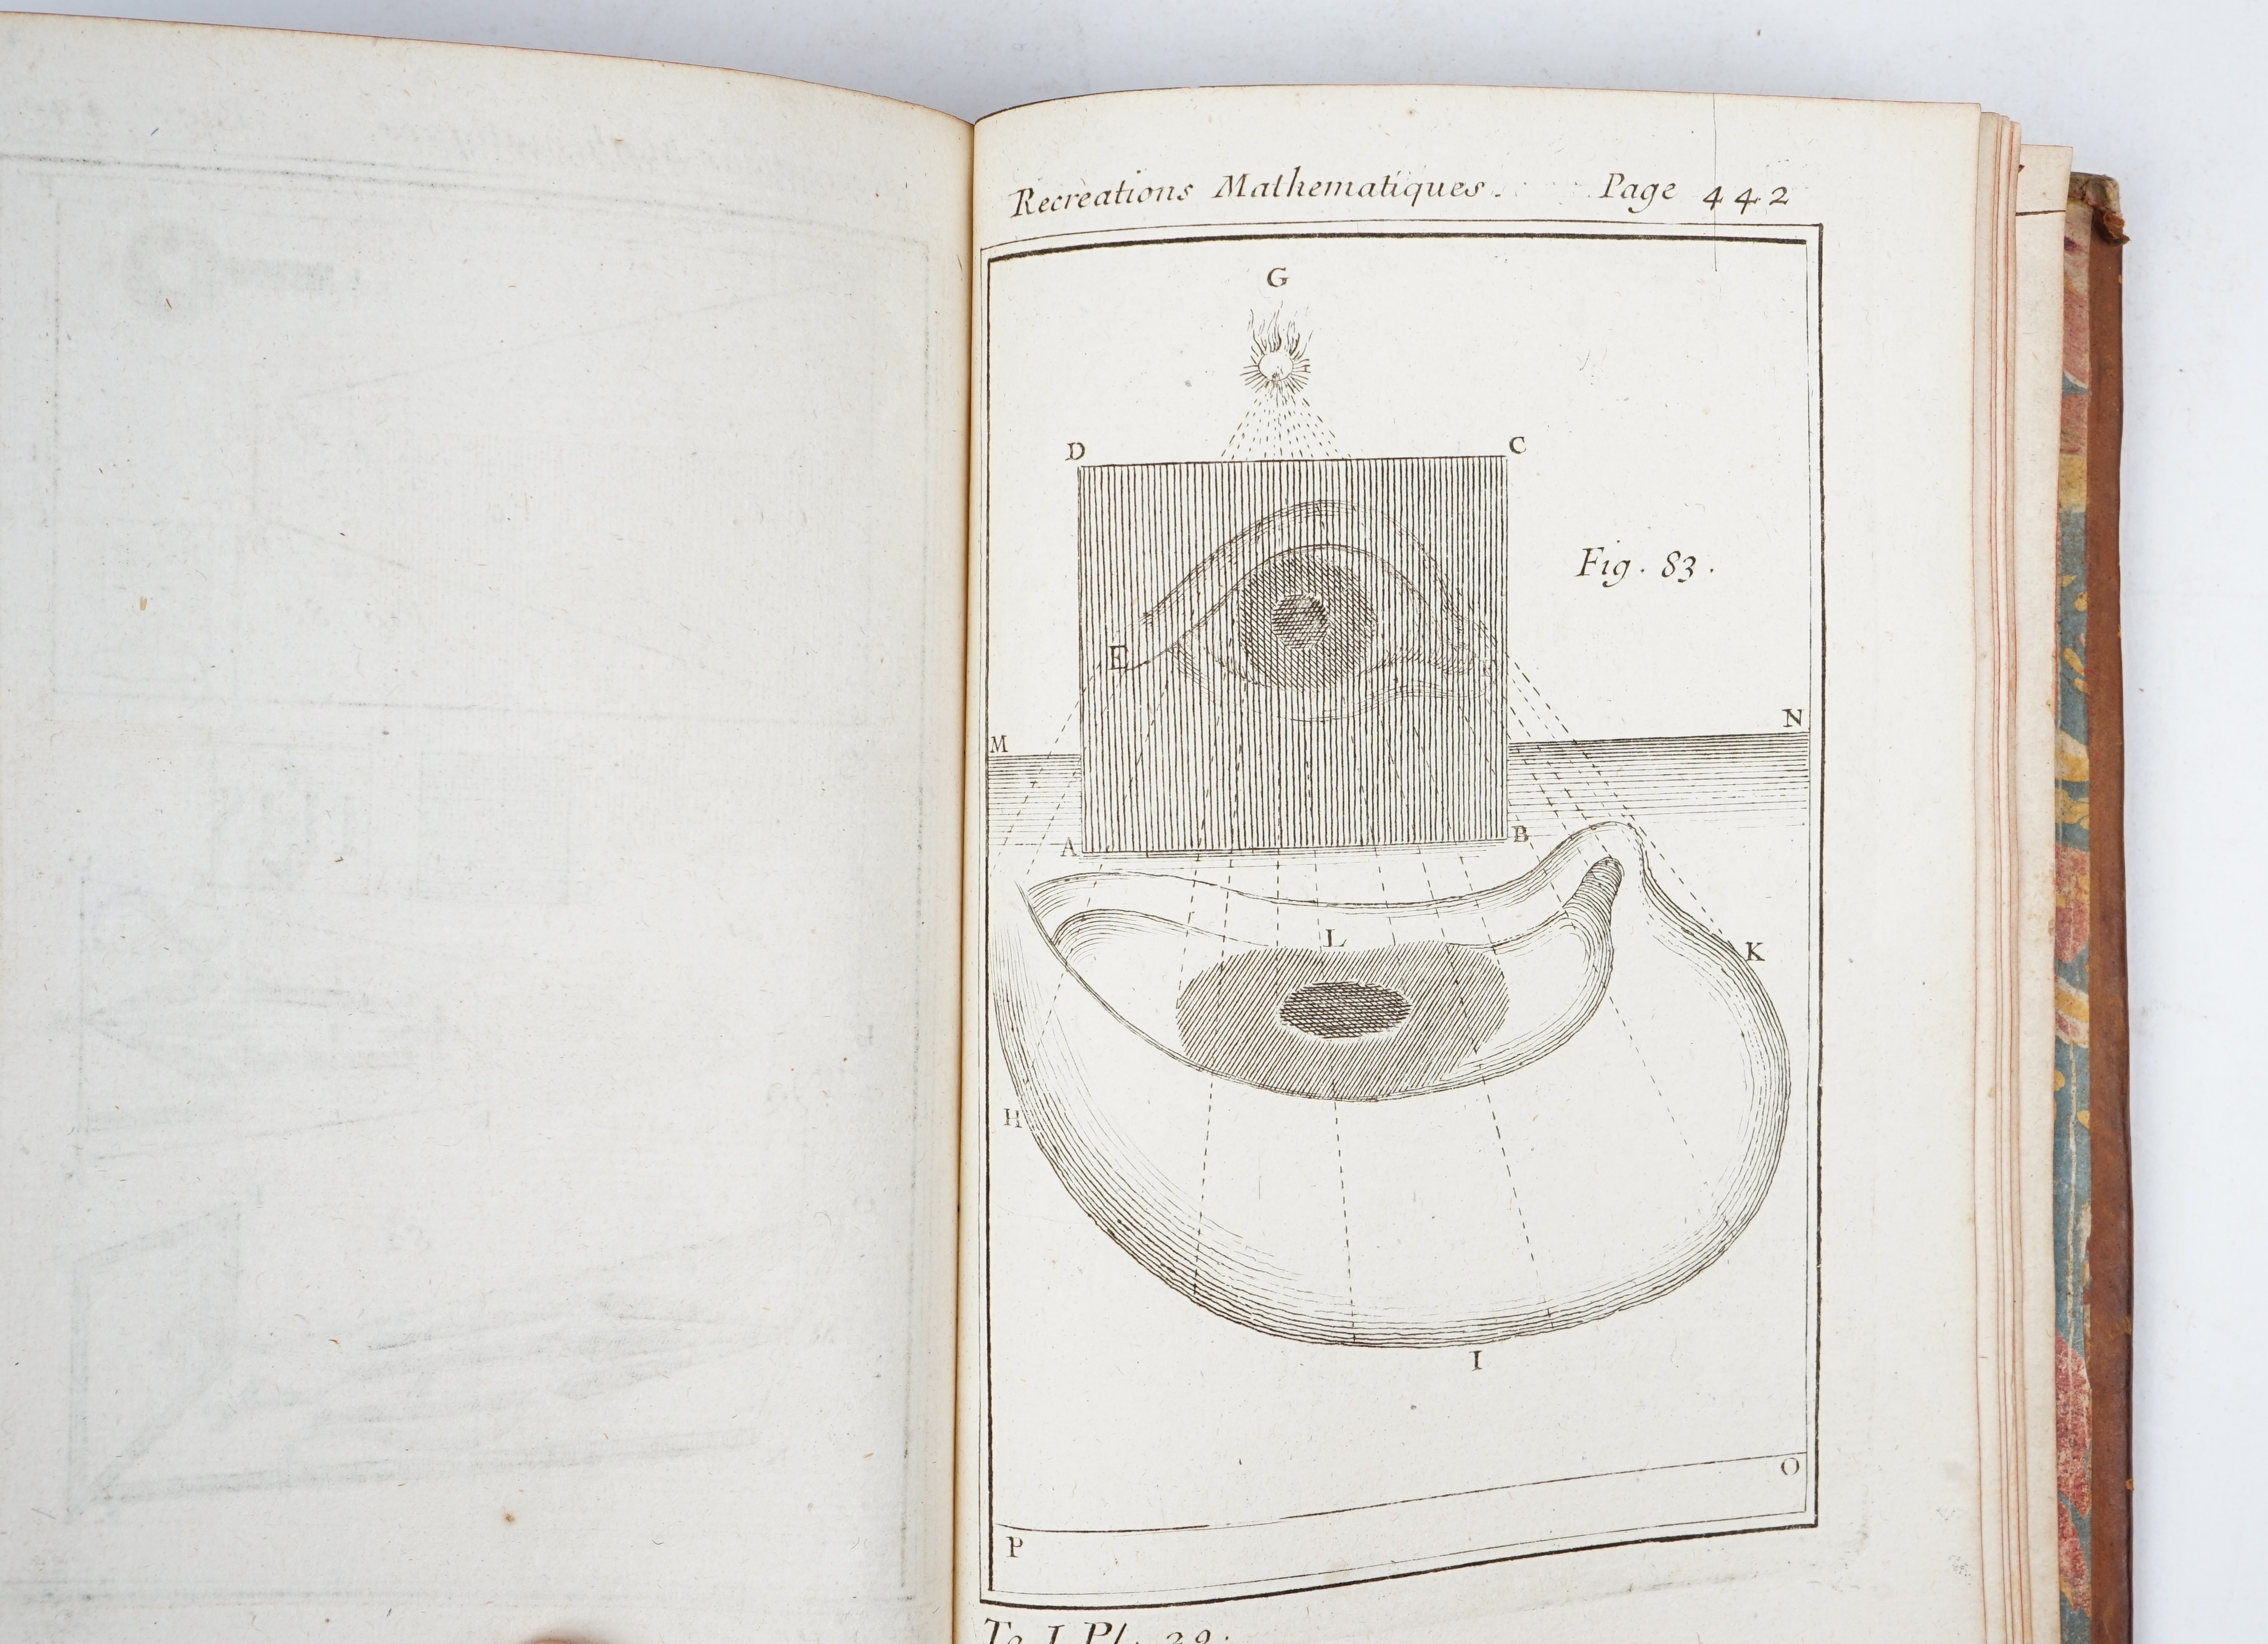 Recreations Mathematiques. Page 442
G
D C
Fig. 83.
E
M N
A B
L
K
H
I
O
P
To I Pl. 29.